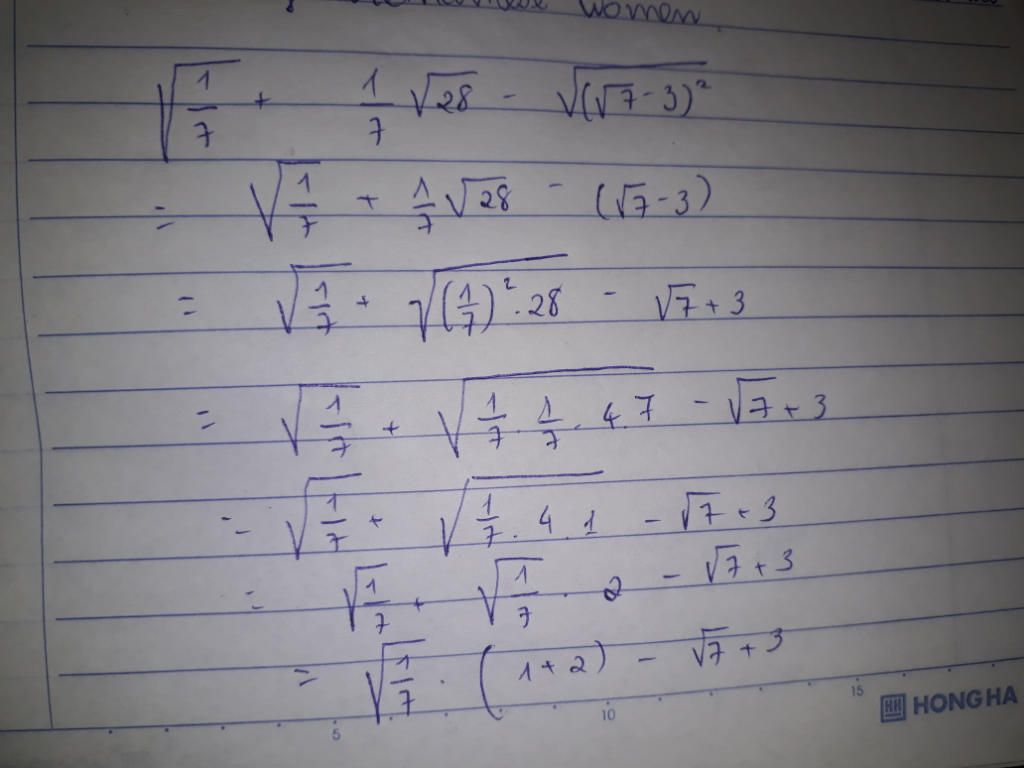 women
√(1/7) + 1/7 √28 - √((√7 - 3)²)
= √(1/7) + 1/7 √28 - (√7 - 3)
= √(1/7) + √((1/7)² . 28) - √7 + 3
= √(1/7) + √(1/7 . 1/7 . 4.7) - √7 + 3
= √(1/7) + √(1/7 . 4 . 1) - √7 + 3
= √(1/7) + √(1/7) . 2 - √7 + 3
= √(1/7) . (1 + 2) - √7 + 3
5 10 15
HONG HA